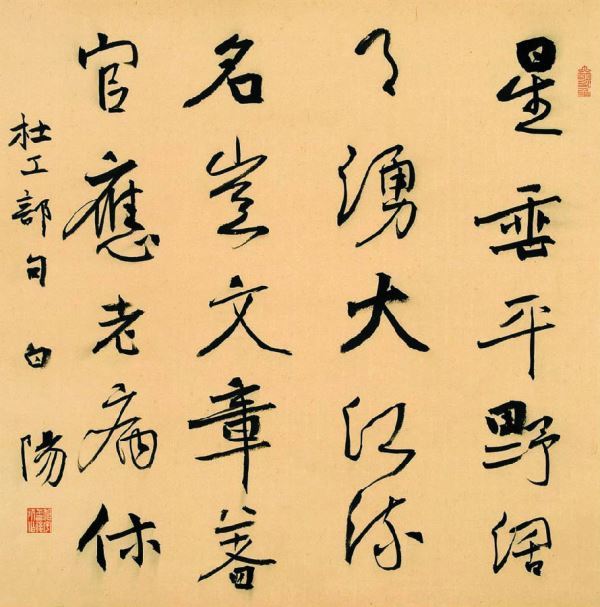 星垂平野闊
月湧大江流
名豈文章著
官應老病休
杜工部句 白陽